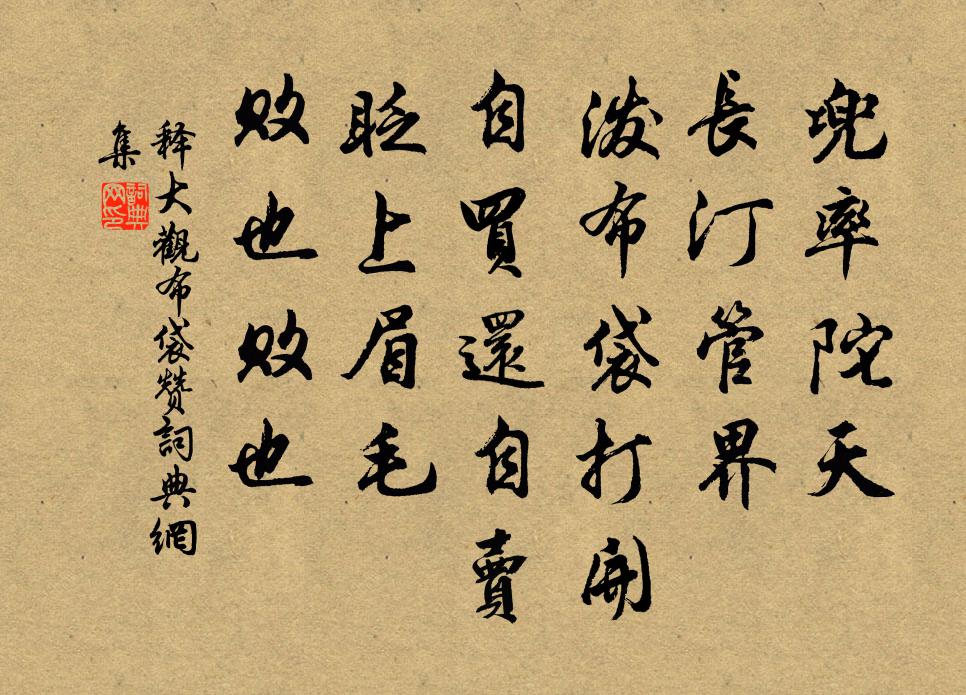 兜率陀天
長汀管界
潑布袋打開
自買還自賣
眨上眉毛
敗也敗也
释大觀布袋赞詞典網
集
詞典網印